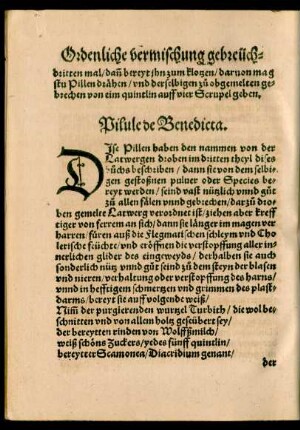 Ordenliche vermischung gebreüch-
dritten mal / dañ bereyt jhn zum klotzen / daruon mag
stu Pillen drähen / vnd der selbigen zů obgemelten ge-
brechen von eim quintlin auff vier Scrupel geben.
Pilule de Benedicta.
DIse Pillen haben den nammen von der
Latwergen droben im dritten theyl dises
bůchs beschriben / dann sie von dem selbi-
gen gestoßnen puluer oder Species be-
reyt werden / seind vast nützlich vnnd gůt
zů allen fälen vnnd gebrechen / dar zů dro-
ben gemelte Latwerg verordnet ist / ziehen aber kreff
tiger von ferrem an sich / dann sie länger im magen ver
harren / füren auß die Flegmatischen schleym vnd Cho
lerische feücht / vnd eröffnen die verstopffung aller in-
nerlichen glider des eingeweyds / derhalben sie auch
sonderlich nütz vnnd gůt seind zů dem steyn der blasen
vnd nieren / verhaltung oder verstopffung des harns /
vnnd in hefftigem schmertzen vnd grimmen des plast
darms / bereyt sie auff volgende weiß /
Nim̃ der purgierenden wurtzel Turbith / die wol be-
schnitten vnd von allem holtz geseübert sey /
der bereyten rinden von Wolffßmilch /
weiß schöns Zuckers / yedes fünff quintlin /
bereyter Scamonea / Diacridium genant /
der